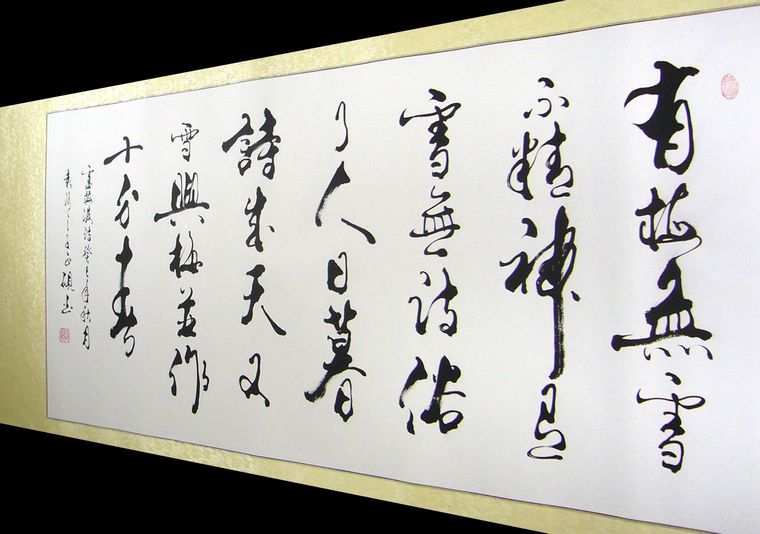 有梅無雪
不精神有
雪無詩俗
了人日暮
詩成天又
雪與梅並作
十分春
盧梅坡詩癸巳年秋月
硯書